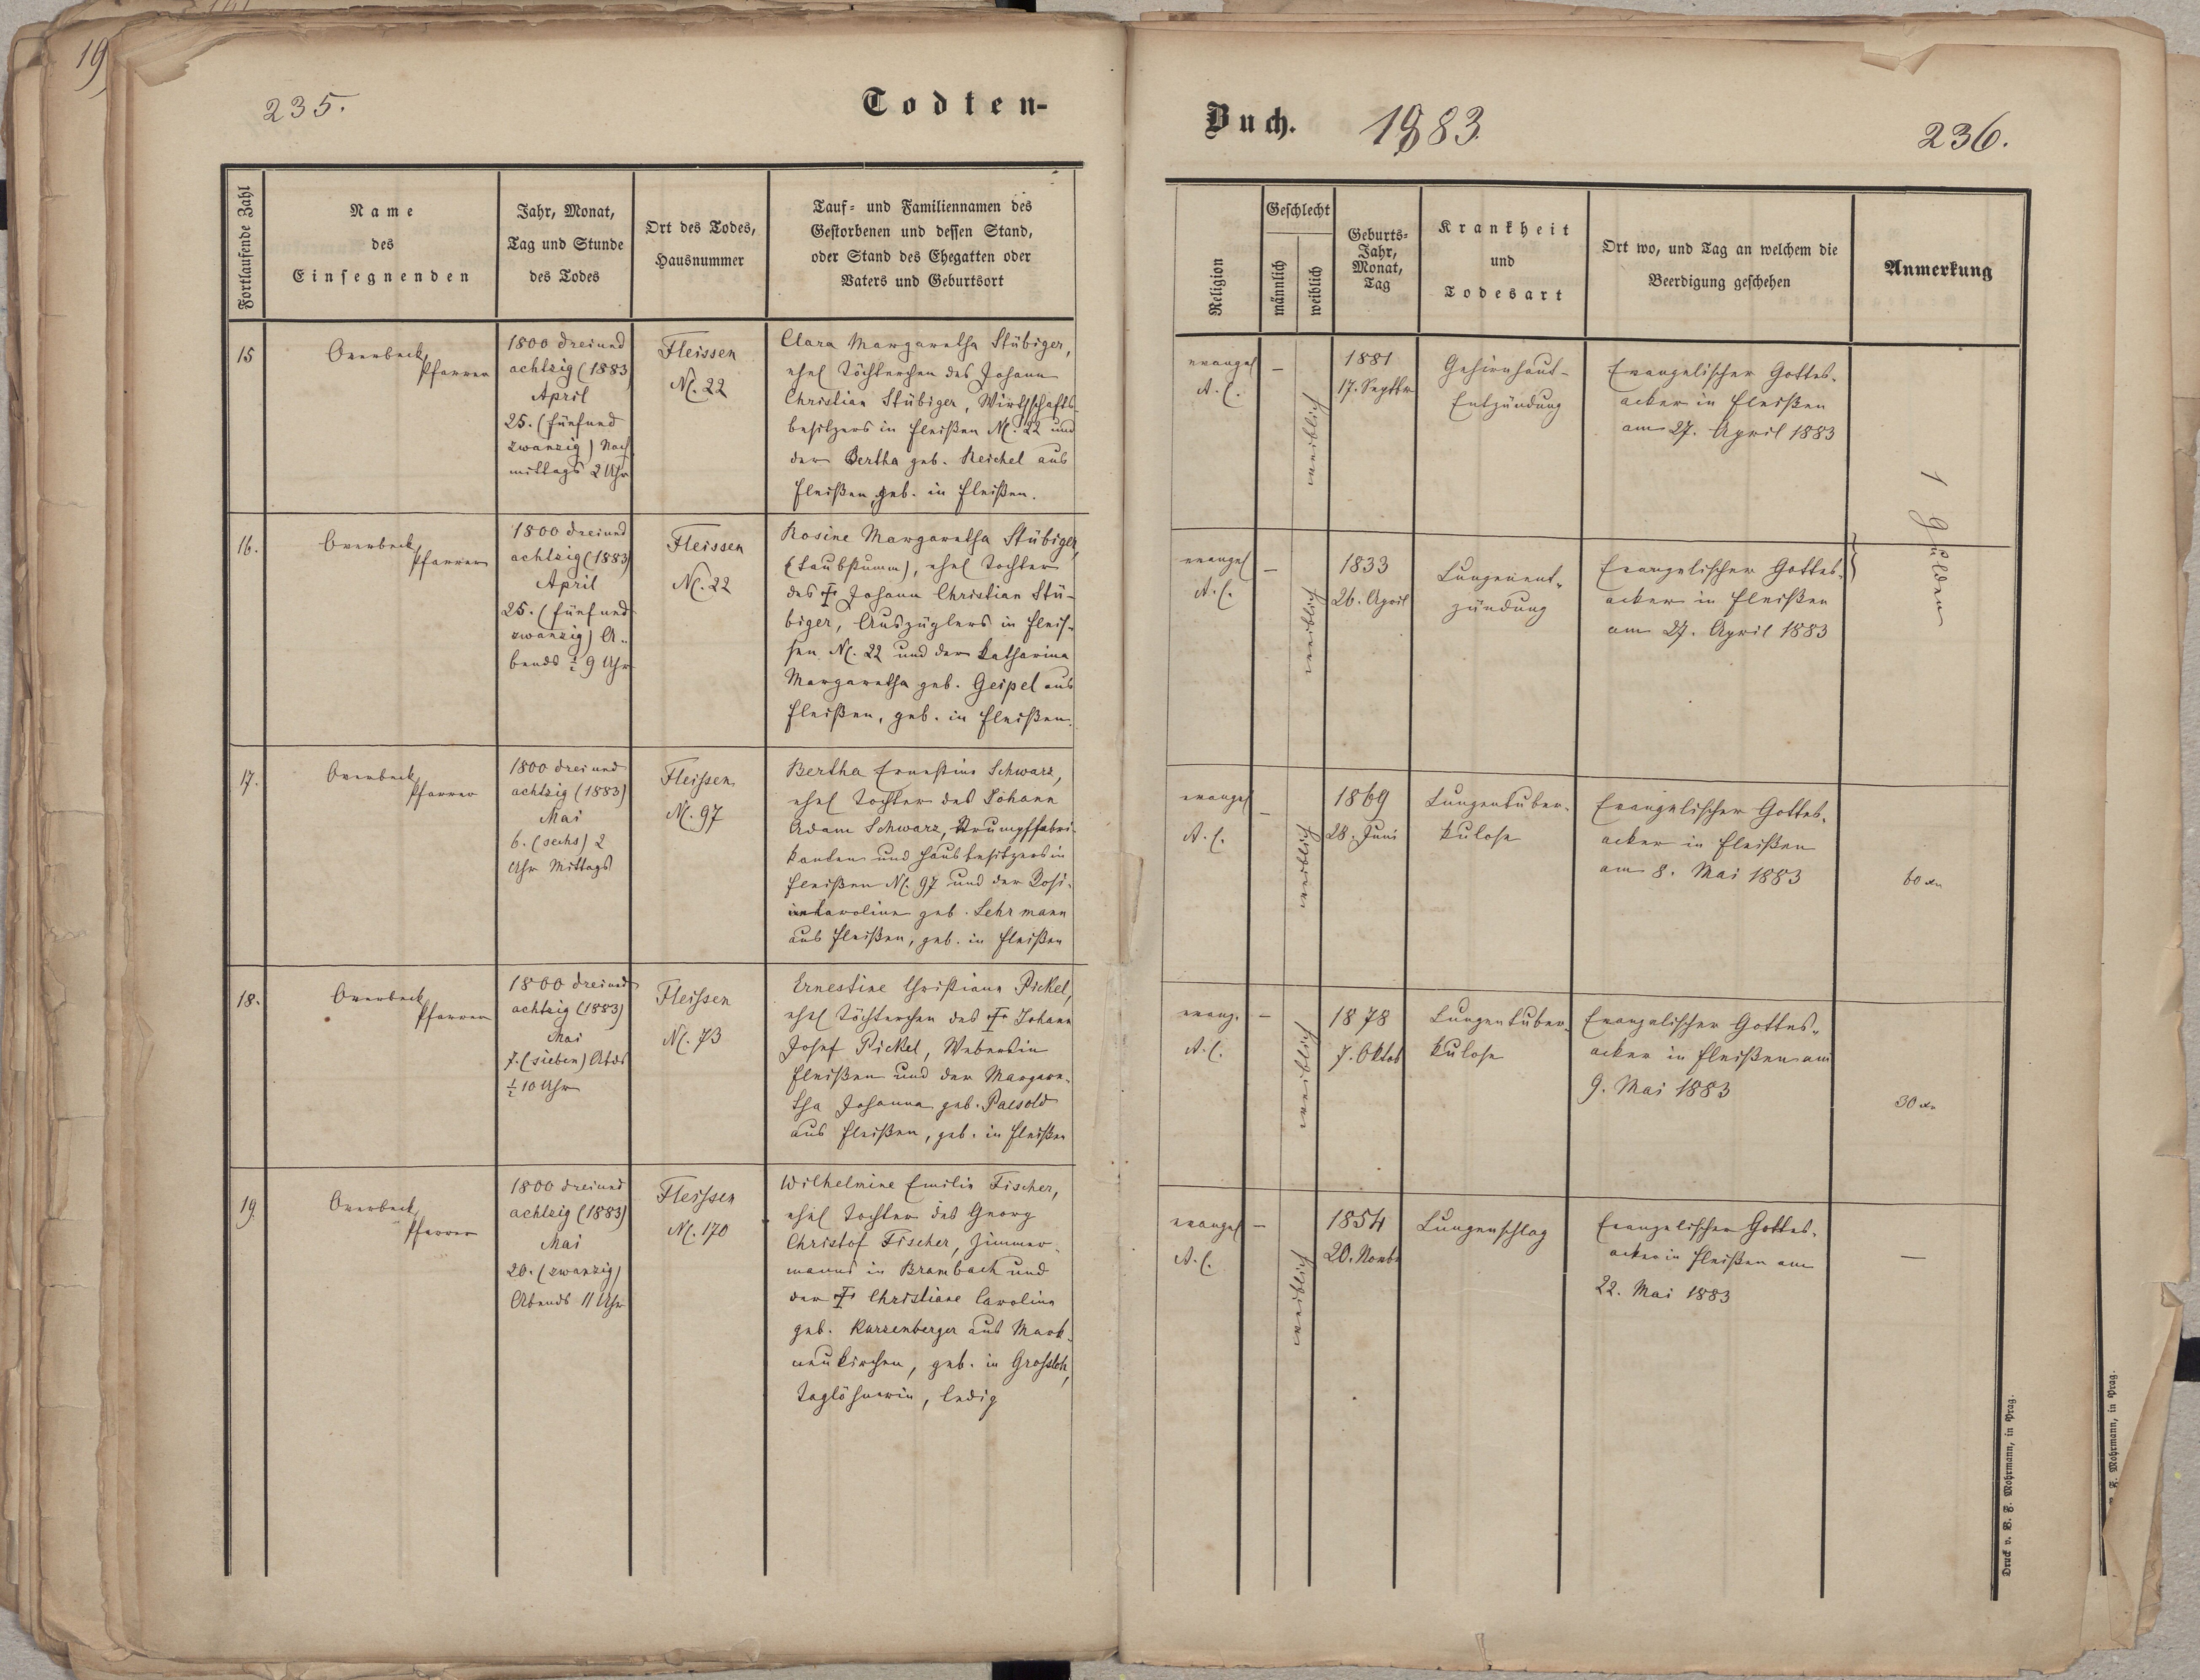 19
235.
Todten-
Fortlaufende Zahl
Name
des
Einsegnenden
Jahr, Monat,
Tag und Stunde
des Todes
Ort des Todes,
Hausnummer
Tauf- und Familiennamen des
Gestorbenen und dessen Stand,
oder Stand des Ehegatten oder
Vaters und Geburtsort
15
Overbeck,
Pfarrer
1800 dreiund
achtzig (1883)
April
25. (fünfund
zwanzig) Nach
mittags 2 Uhr
Fleissen
N. 22
Clara Margaretha Stübiger,
ehel Töchterchen des Johann
Christian Stübiger, Wirthschafts-
besitzers in Fleißen N. 22 und
der Bertha geb. Reichel aus
Fleißen, geb. in Fleißen.
16.
Overbeck,
Pfarrer
1800 dreiund
achtzig (1883)
April
25. (fünfund
zwanzig) A-
bends ½ 9 Uhr
Fleissen
N. 22
Rosine Margaretha Stübiger,
(taubstumm), ehel Tochter
des † Johann Christian Stü-
biger, Auszüglers in Fleis-
sen N. 22 und der Katharina
Margaretha geb. Geipel aus
Fleißen, geb. in Fleißen.
17.
Overbeck,
Pfarrer
1800 dreiund
achtzig (1883)
Mai
6. (sechs) 2
Uhr Mittags
Fleissen
N. 97
Bertha Ernestine Schwarz,
ehel Tochter des Johann
Adam Schwarz, Strumpffabri-
kanten und Hausbesitzers in
Fleißen N. 97 und der Rosi-
ne Karoline geb. Lehrmann
aus Fleißen, geb. in Fleißen
18.
Overbeck,
Pfarrer
1800 dreiund
achtzig (1883)
Mai
7. (sieben) Abds
½ 10 Uhr
Fleissen
N. 73
Ernestine Christiane Pickel,
ehel Töchterchen des † Johann
Josef Pickel, Webers in
Fleißen und der Margare-
tha Johanna geb. Paesold
aus Fleißen, geb. in Fleißen
19.
Overbeck,
Pfarrer
1800 dreiund
achtzig (1883)
Mai
20. (zwanzig)
Abends 11 Uhr
Fleissen
N. 170
Wilhelmine Emilie Fischer,
ehel Tochter des Georg
Christof Fischer, Zimmer-
manns in Brambach und
der † Christiane Caroline
geb. Kurzenberger aus Mark-
neukirchen, geb. in
Taglöhnerin, ledig
Buch.
1883
236.
Religion
Geschlecht
männlich
weiblich
Geburts-
Jahr,
Monat,
Tag
Krankheit
und
Todesart
Ort wo, und Tag an welchem die
Beerdigung geschehen
Anmerkung
evangel
A. C.
–
weiblich
1881
17. Septbr
Gehirnhaut-
Entzündung
Evangelischer Gottes-
acker in Fleißen
am 27. April 1883
1 Gulden
evangel
A. C.
–
weiblich
1833
26. April
Lungenent-
zündung
Evangelischer Gottes-
acker in Fleißen
am 27. April 1883
evangel
A. C.
–
weiblich
1869
28. Juni
Lungentuber-
kulose
Evangelischer Gottes-
acker in Fleißen
am 8. Mai 1883
60 xr
evang.
A. C.
–
weiblich
1878
7. Oktob
Lungentuber-
kulose
Evangelischer Gottes-
acker in Fleißen am
9. Mai 1883
30 xr
evangel
A. C.
–
weiblich
1854
20. Novbr
Lungenschlag
Evangelischer Gottes-
acker in Fleißen am
22. Mai 1883
–
Druck v. B. F. Mohrmann, in Prag.
F. Mohrmann, in Prag.